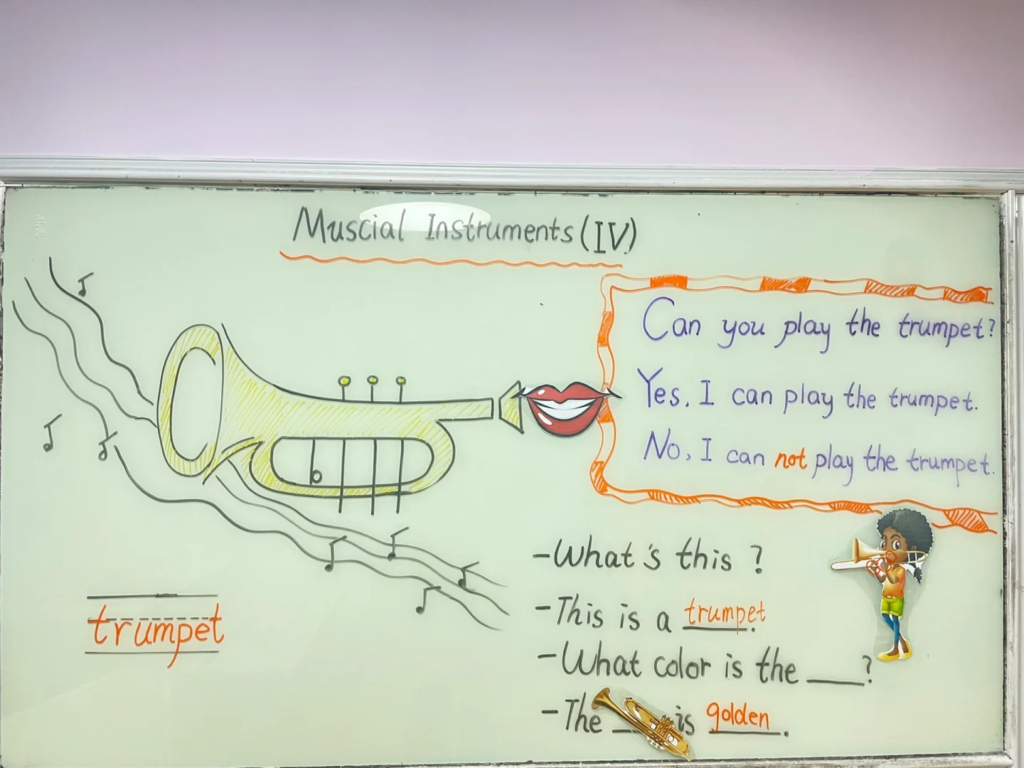 Muscial Instruments (IV)
Can you play the trumpet?
Yes, I can play the trumpet.
No, I can not play the trumpet.
-What's this?
-This is a trumpet.
-What color is the ____?
-The ____ is golden.
trumpet